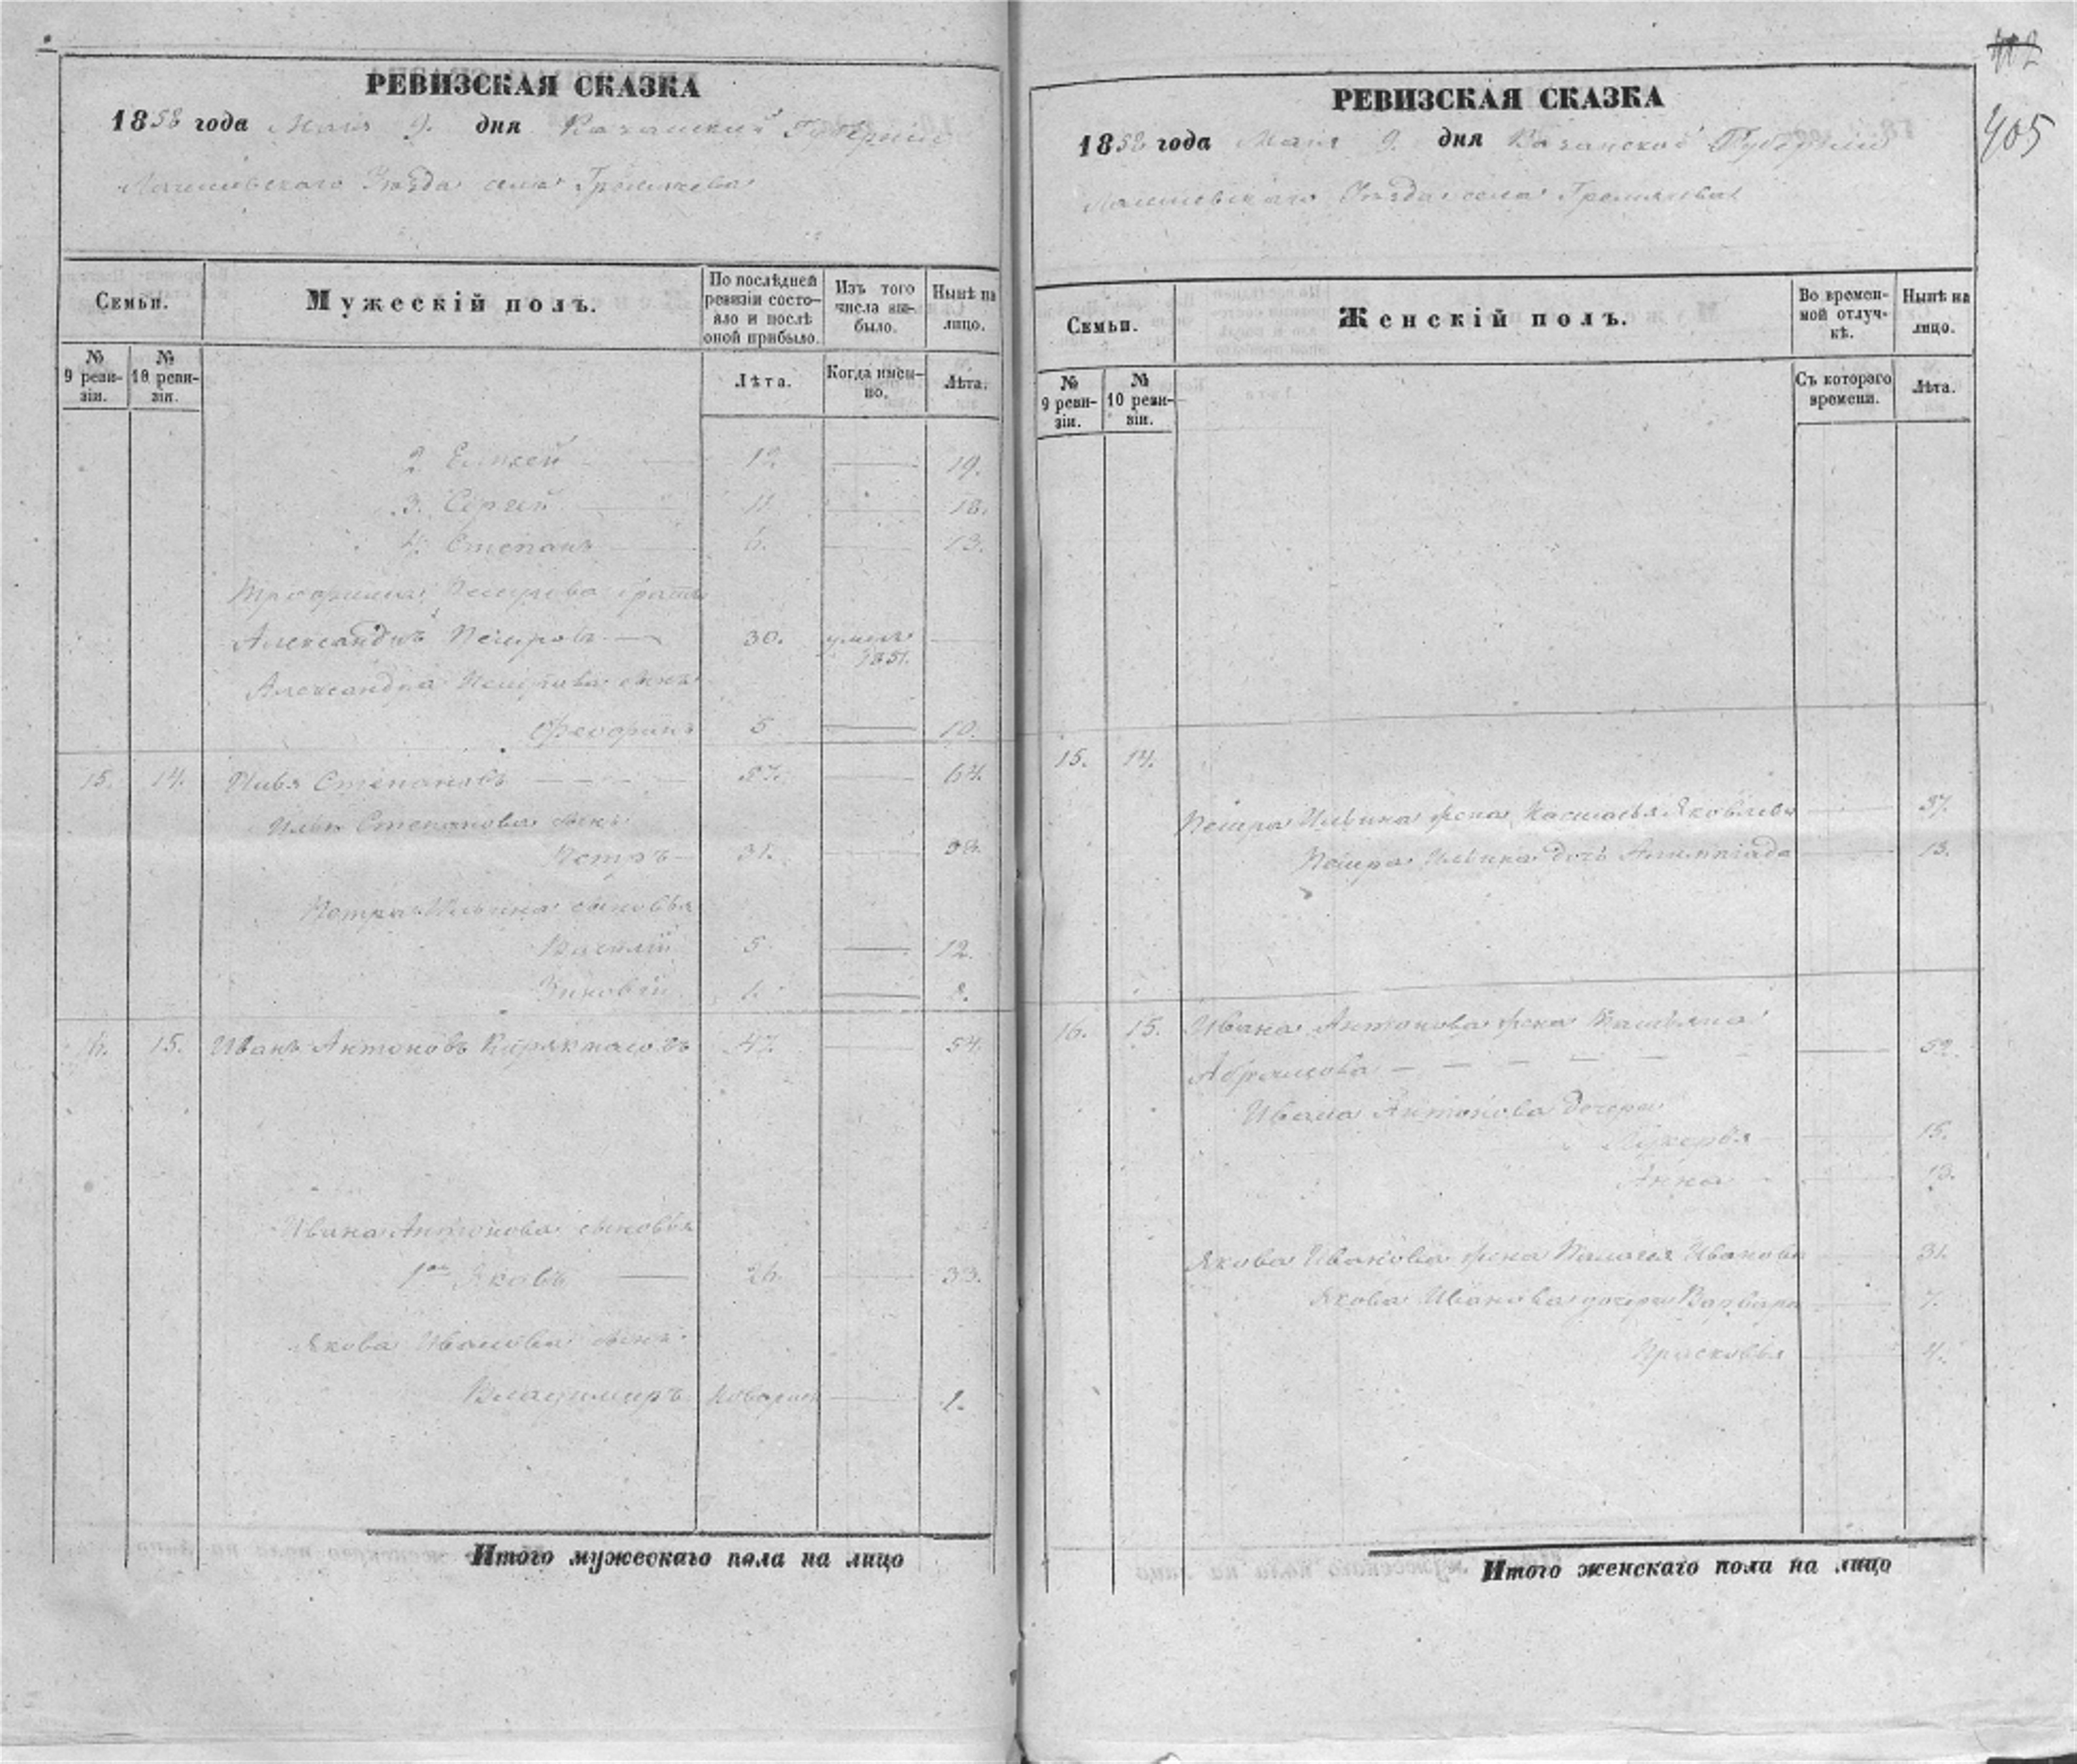 РЕВИЗСКАЯ СКАЗКА
1858 года Маія 9. дня Казанской Губерніи
Лаишевскаго Уѣзда села Гремячева
Семьи.
Мужескій полъ.
По послѣдней ревизіи состояло и послѣ оной прибыло.
Изъ того числа выбыло.
Нынѣ на лицо.
№ 9 ревизіи.
№ 10 ревизіи.
Лѣта.
Когда именно.
Лѣта.
2 Елисей 12. 19.
3. Сергей 11 18.
4. Степанъ 6. 13.
Трофима Петрова братъ
Александръ Петровъ 30. умеръ 1851.
Александра Петрова сынъ
5 10.
15. 14. Илья Степановъ 57. 64.
Ильи Степанова сынъ
Петръ 31. 38.
Петра Ильина сыновья
Василій 5. 12.
Зиновій 1. 8.
16. 15. Иванъ Антоновъ 47. 54.
Ивана Антонова сыновья
1ой Яковъ 26. 33.
Якова Иванова сынъ
Владимиръ новорож 1.
Итого мужескаго пола на лицо
402
405
РЕВИЗСКАЯ СКАЗКА
1858 года Маія 9. дня Казанской Губерніи
Лаишевскаго Уѣзда села Гремячева
Семьи.
Женскій полъ.
Во временной отлучкѣ.
Нынѣ на лицо.
№ 9 ревизіи.
№ 10 ревизіи.
Съ котораго времени.
Лѣта.
15. 14.
Петра Ильина жена Настасья Яковлева 37.
Петра Ильина дочь 13.
16. 15. Ивана Антонова жена Татьяна
Абрамова 52.
Ивана Антонова дочери
Лукерья 15.
Анна 13.
Якова Иванова жена Палагея Иванова 31.
Якова Иванова дочери Варвара 7.
Прасковья 4.
Итого женскаго пола на лицо